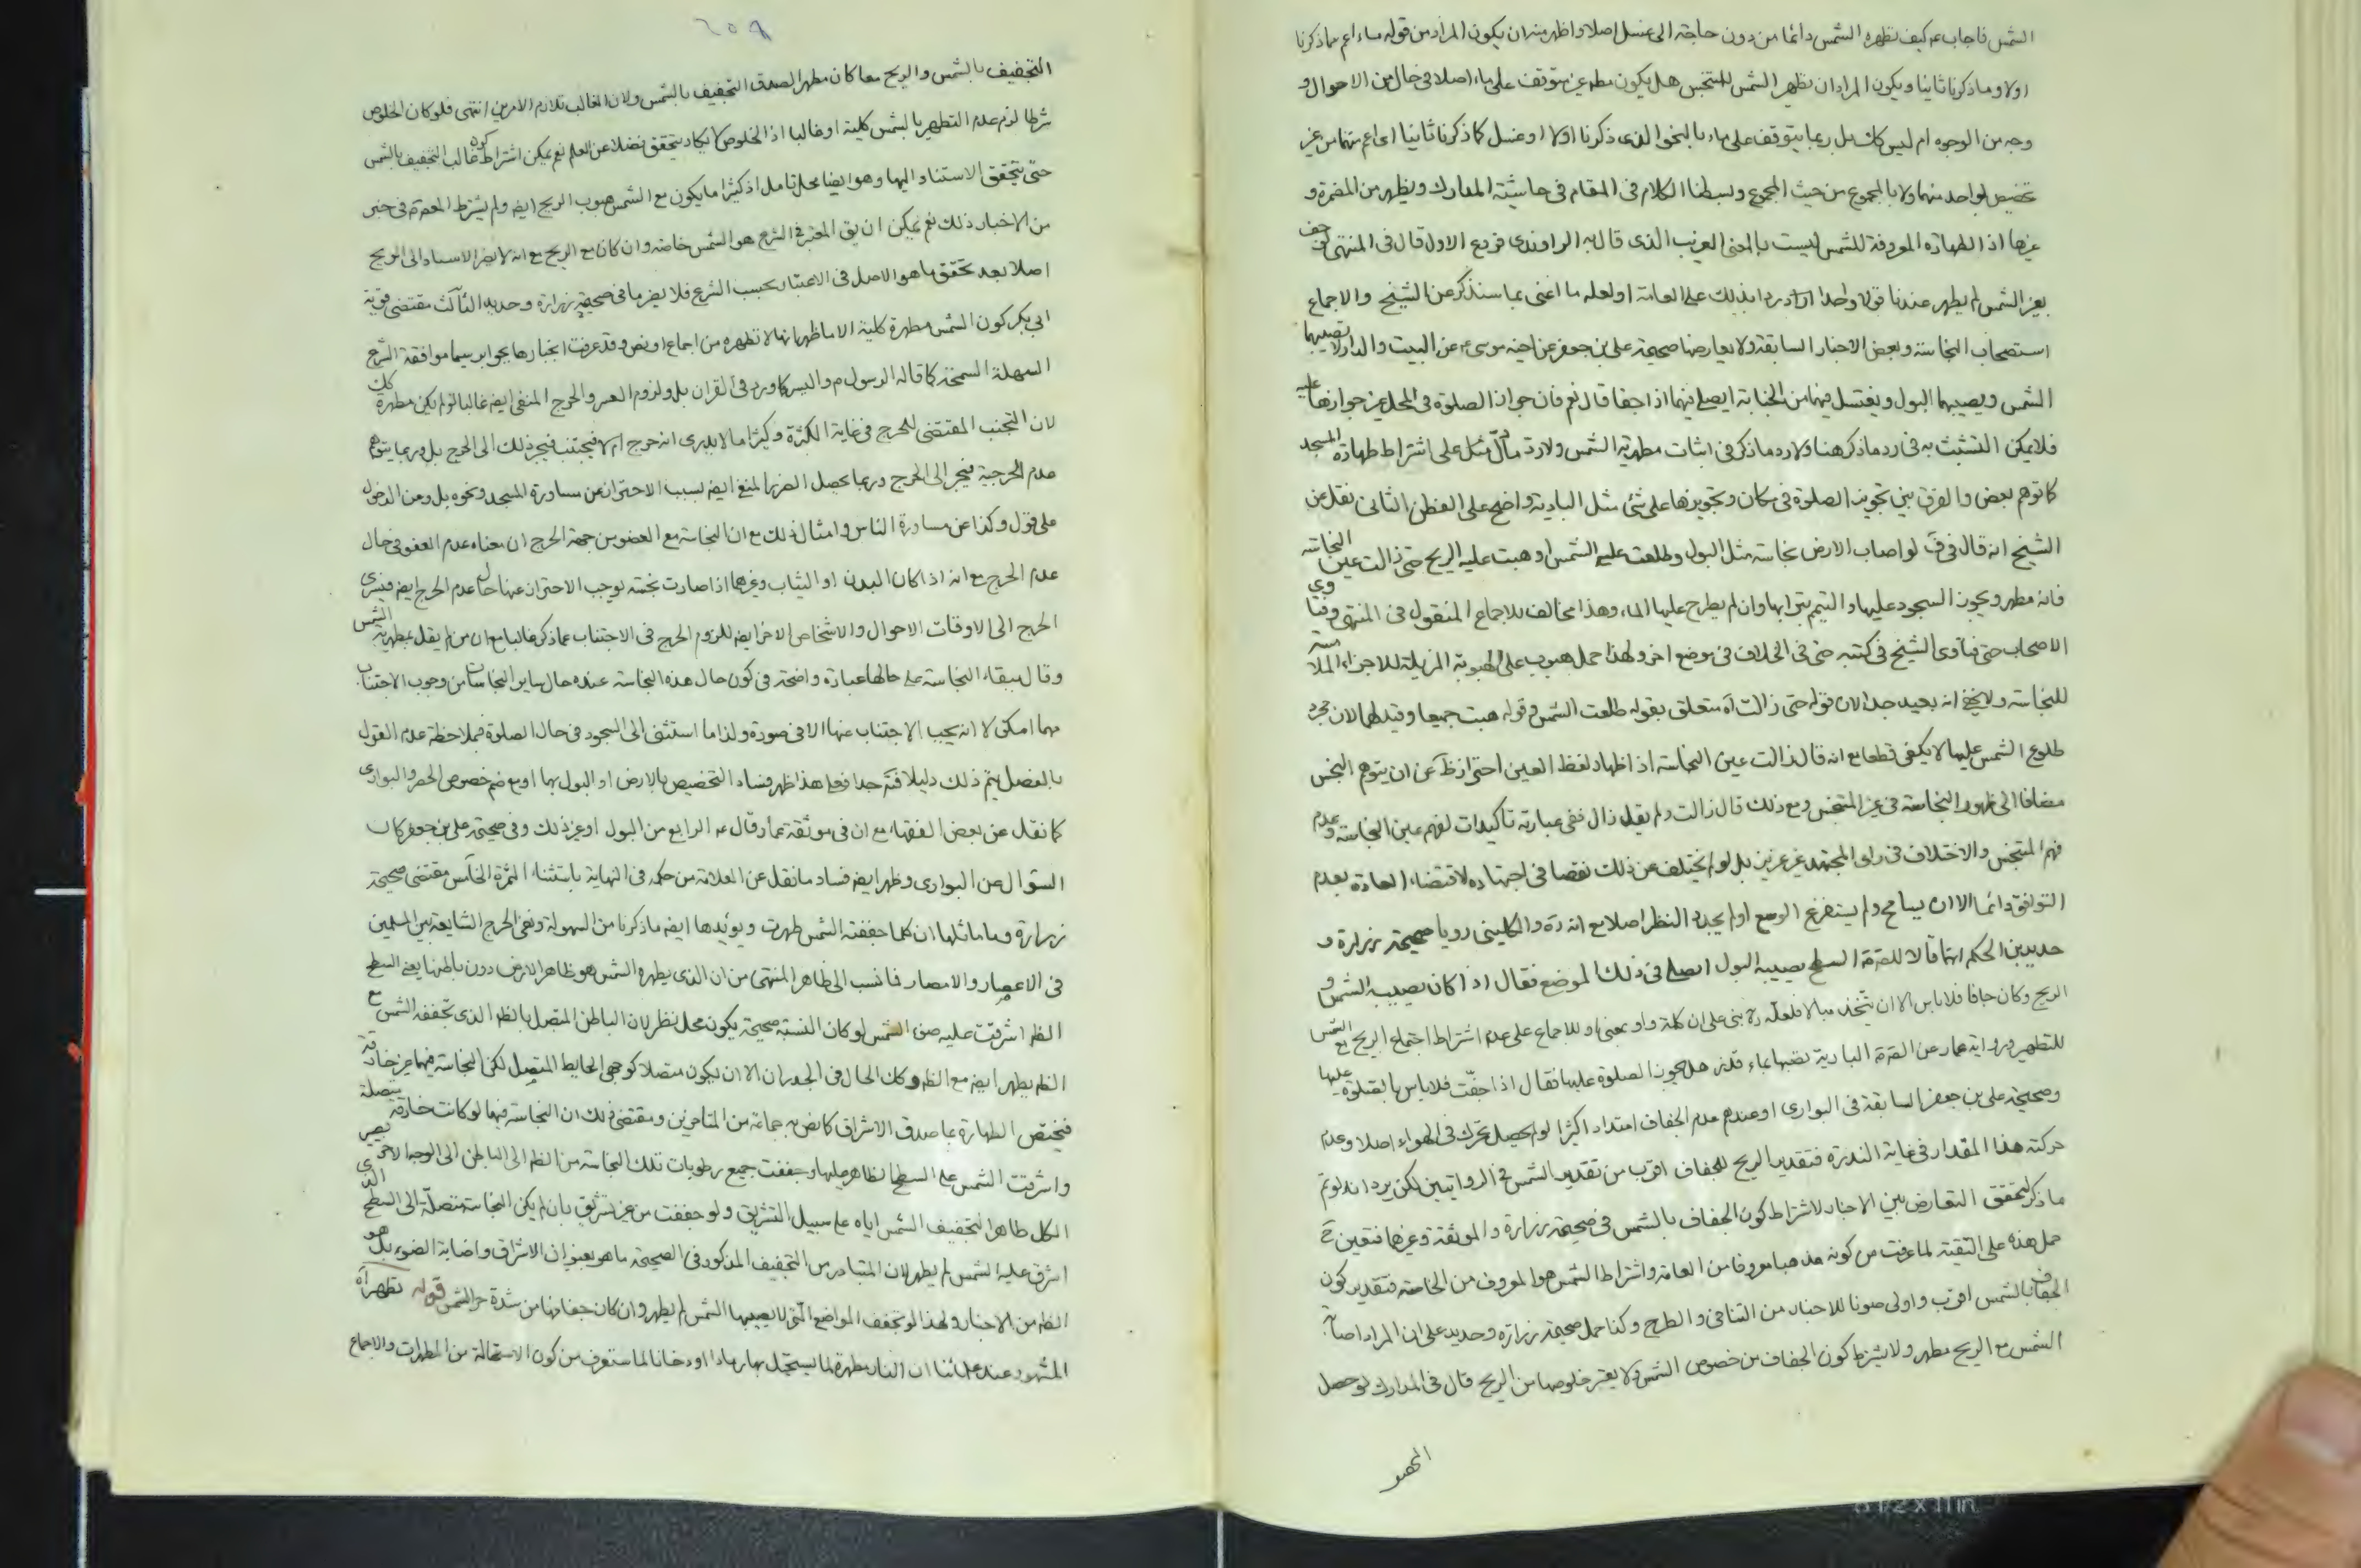 الشمس فاجاب ع كيف تطهره الشمس دائما من دون حاجة الى غسل اصلا واظهر منه ان يكون المراد من قوله ماء اعم مما ذكرنا
اولا وما ذكرنا ثانيا ويكون المراد ان تطهير الشمس للمتنجس هل يكون مطهر غير متوقف على ماء اصلا في حال من الاحوال و
وجه من الوجوه ام ليس كك بل ربما يتوقف على ماء بالنحو الذي ذكرنا اولا او غسل كما ذكرنا ثانيا اى اعم منهما من غير
تخصيص لواحد منهما ولا بالمجموع من حيث المجموع وبسطنا الكلام في المقام في حاشية المدارك ويظهر من المضمرة و
غيرها اذ الطهارة المعروفة للشمس ليست بالمعنى الغريب الذي قال به الراوندى فروع الاول قال في المنتهى لو جف
بغير الشمس لم يطهر عندنا قولا واحدا اراد ردا بذلك على العامة او لعله ما اعنى بما سنذكر عن الشيخ والاجماع
استصحاب النجاسة وبعض الاخبار السابقة ولا يعارضها صحيحة على بن جعفر عن اخيه موسى ع عن البيت والدار لا يصيبهما
الشمس ويصيبهما البول ويغتسل فيهما من الجنابة ايصلى فيهما اذا جفا قال نعم فان جواز الصلوة في المحل غير جوازها عليه
فلا يمكن التشبث به في رد ما ذكر هنا ولا رد ما ذكر في اثبات مطهرية الشمس ولا رد ما دل مثل على اشتراط طهارة المسجد
كما توهم بعض والفرق بين تجويز الصلوة في مكان وتجويزها على شئ مثل البادية واضح على الفطن الثانى نقل عن
الشيخ انه قال في ف لو اصاب الارض نجاسة مثل البول وطلعت عليه الشمس او هبت عليه الريح حتى زالت عين النجاسة
فانه مطهر ويجوز السجود عليها والتيمم بترابها وان لم يطرح عليها الماء وهذا مخالف للاجماع المنقول في المنتهى وفتاوى
الاصحاب حتى فتاوى الشيخ في كتبه حتى في الخلاف في موضع اخر ولهذا حمل هبوب على الهبوبة المزيلة للاجزاء الملاصقة
للنجاسة ولا يخفى انه بعيد جدا لان قوله حتى زالت اه متعلق بقوله طلعت الشمس وقوله هبت جميعا وقيد لهما لان مجرد
طلوع الشمس عليها لا يكفى قطعا مع انه قال زالت عين النجاسة اذ اظهار لفظ العين احتراز ظ عن ان يتوهم النجس
مضافا الى ظهور النجاسة في غير المتنجس ومع ذلك قال زالت ولم يقل زال ففى عبارته تاكيدات لفهم عين النجاسة وعدم
فهم المتنجس والاختلاف في راى المجتهد غير عزيز بل لو لم يختلف عن ذلك نقصا في اجتهاده لاقتضاء العادة بعدم
التوافق دائما الا ان يسامح ولم يستفرغ الوسع او لم يجدد النظر اصلا مع انه ره والكلينى رويا صحيحة زرارة و
حديد بن الحكم انهما قالا للصادق ع السطح يصيبه البول ايصلى في ذلك الموضع فقال اذا كان يصيبه الشمس و
الريح وكان جافا فلا باس الا ان يتخذ مبالا فلعله ره بنى على ان كلمة واو بمعنى او للاجماع على عدم اشتراط اجتماع الريح مع الشمس
للتطهير ورواية عمار عن الصادق ع البارية نضبها بماء قذر هل يجوز الصلوة عليها فقال اذا جفت فلا باس بالصلوة عليها
وصحيحة على بن جعفر السابقة في البوارى او عندهم عدم الجفاف امتداد اكثر لو لم يحصل تحرك في الهواء اصلا وعدم
حركته هذا المقدار في غاية الندرة فتقدير الريح للجفاف اقرب من تقدير الشمس في الروايتين لكن يرد انه لو تم
ما ذكر لتحقق التعارض بين الاخبار لاشتراط كون الجفاف بالشمس في صحيحة زرارة والموثقة وغيرها فتعين ح
حمل هذه على التقية لما عرفت من كونه مذهبا معروفا من العامة واشتراط الشمس هو المعروف من الخاصة فتقدير كون
الجفاف بالشمس اقرب واولى صونا للاخبار من التنافى والطرح وكذا حمل صحيحة زرارة وحديد على ان المراد اصابة
الشمس مع الريح مطهر ولا يشترط كون الجفاف من خصوص الشمس ولا يعتبر خلوصها من الريح قال في المدارك لو حصل
٢٥٩
التجفيف بالشمس والريح معا كان مطهرا لصدق التجفيف بالشمس ولان الغالب تلازم الامرين انتهى فلو كان الخلوص
شرطا لزم عدم التطهير بالشمس كلية او غالبا اذ الخلوص لا يكاد يتحقق فضلا عن العلم نعم يمكن اشتراط كون غالب التجفيف بالشمس
حتى يتحقق الاستناد اليها وهو ايضا محل تامل اذ كثيرا ما يكون مع الشمس هبوب الريح ايضا ولم يشترط المعصوم ع في خبر
من الاخبار ذلك نعم يمكن ان يق المعتبر في الشرع هو الشمس خاصة وان كان مع الريح مع انه لا يضر الاسناد الى الريح
اصلا بعد تحقق ما هو الاصل في الاعتبار بحسب الشرع فلا يضر ما في صحيحة زرارة وحديد الثالث مقتضى قوية
ابى بكر كون الشمس مطهرة كلية الا ما ظهر انها لا تطهره من اجماع او نص وقد عرفت انجبارها بجوابر سيما موافقة الشرع
السهلة السمحة كما قاله الرسول ص واليسر كما ورد في القران بل ولزوم العسر والحرج المنفى ايضا غالبا لو لم يكن مطهرة كك
لان التجنب المقتضى للحرج في غاية الكثرة وكثيرا ما لا يدرى انه حرج ام لا فيجتنب فيجر ذلك الى الحرج بل وربما يتوهم
عدم الحرجية فينجر الى الحرج وربما يحصل الضرر المنفى ايضا بسبب الاحتراز عن مساورة المسجد ونحوه بل ومن الدخول
على قول وكذا عن مساورة الناس وامثال ذلك مع ان النجاسة مع العفو من جهة الحرج ان معناه عدم العفو في حال
عدم الحرج مع انه اذا كان البدن او الثياب وغيرهما اذا صارت نجسة يوجب الاحتراز عنها حال عدم الحرج ايضا فيسرى
الحرج الى الاوقات الاحوال والاشخاص الاخر ايضا للزوم الحرج في الاجتناب عما ذكر غالبا مع ان من لم يقل بمطهرية الشمس
وقال ببقاء النجاسة على حالها عبارة واضحة في كون حال هذه النجاسة عنده حال ساير النجاسات من وجوب الاجتناب
مهما امكن لا انه يجب الاجتناب عنها الا في صورة ولذا ما استثنى الى السجود في حال الصلوة فملاحظة عدم القول
بالفصل يتم ذلك دليلا قوية جدا فعلى هذا ظهر فساد التخصيص بالارض او البول بها او مع ضم خصوص الحصر والبوارى
كما نقل عن بعض الفقهاء مع ان في موثقة عمار وقال ع الرابع من البول او غير ذلك وفي صحيحة على بن جعفر كان
السؤال عن البوارى وظهر ايضا فساد ما نقل عن العلامة من حكمه في النهاية باستثناء الثمرة الخامس مقتضى صحيحة
زرارة وما ماثلها ان كلما جففته الشمس طهرت ويؤيدها ايضا ما ذكرنا من السهولة ونفى الحرج الشايعة بين المسلمين
في الاعصار والامصار فما نسب الى ظاهر المنتهى من ان الذى يطهره الشمس هو ظاهر الارض دون باطنها يعنى السطح
الظ اشرقت عليه ضوء الشمس لو كان النسبة صحيحة يكون محل نظر لان الباطن المتصل بالظ الذى تجففه الشمس مع
الظ يطهر ايضا مع الظ وكك الحال في الجدران الا ان يكون متصلا كوجهى الحايط المتصل لكن النجاسة فيهما غير خارقة
فيختص الطهارة بما صدق الاشراق كما نص به جماعة من المتاخرين ومقتضى ذلك ان النجاسة فيهما لو كانت خارقة متصلة
واشرقت الشمس على السطح الظاهر عليها وجففت جميع رطوبات تلك النجاسة من الظ الى الباطن الى الوجه الاخر يصير
الكل طاهرا لتجفيف الشمس اياه على سبيل التشريق ولو جففت من غير تشريق بان لم يكن النجاسة متصلة الى السطح الذى
اشرق عليه الشمس لم يطهر لان المتبادر من التجفيف المذكور في الصحيحة ما هو بعنوان الاشراق واصابة الضوء بل هو
الظ من الاخبار ولهذا لو تجفف المواضع التى لا يصيبها الشمس لم يطهر وان كان جفافها من شدة حر الشمس قوله تطهر اه
المشهور عند علمائنا ان النار مطهرة لما يستحيل بها رمادا او دخانا لما ستعرف من كون الاستحالة من المطهرات والاجماع